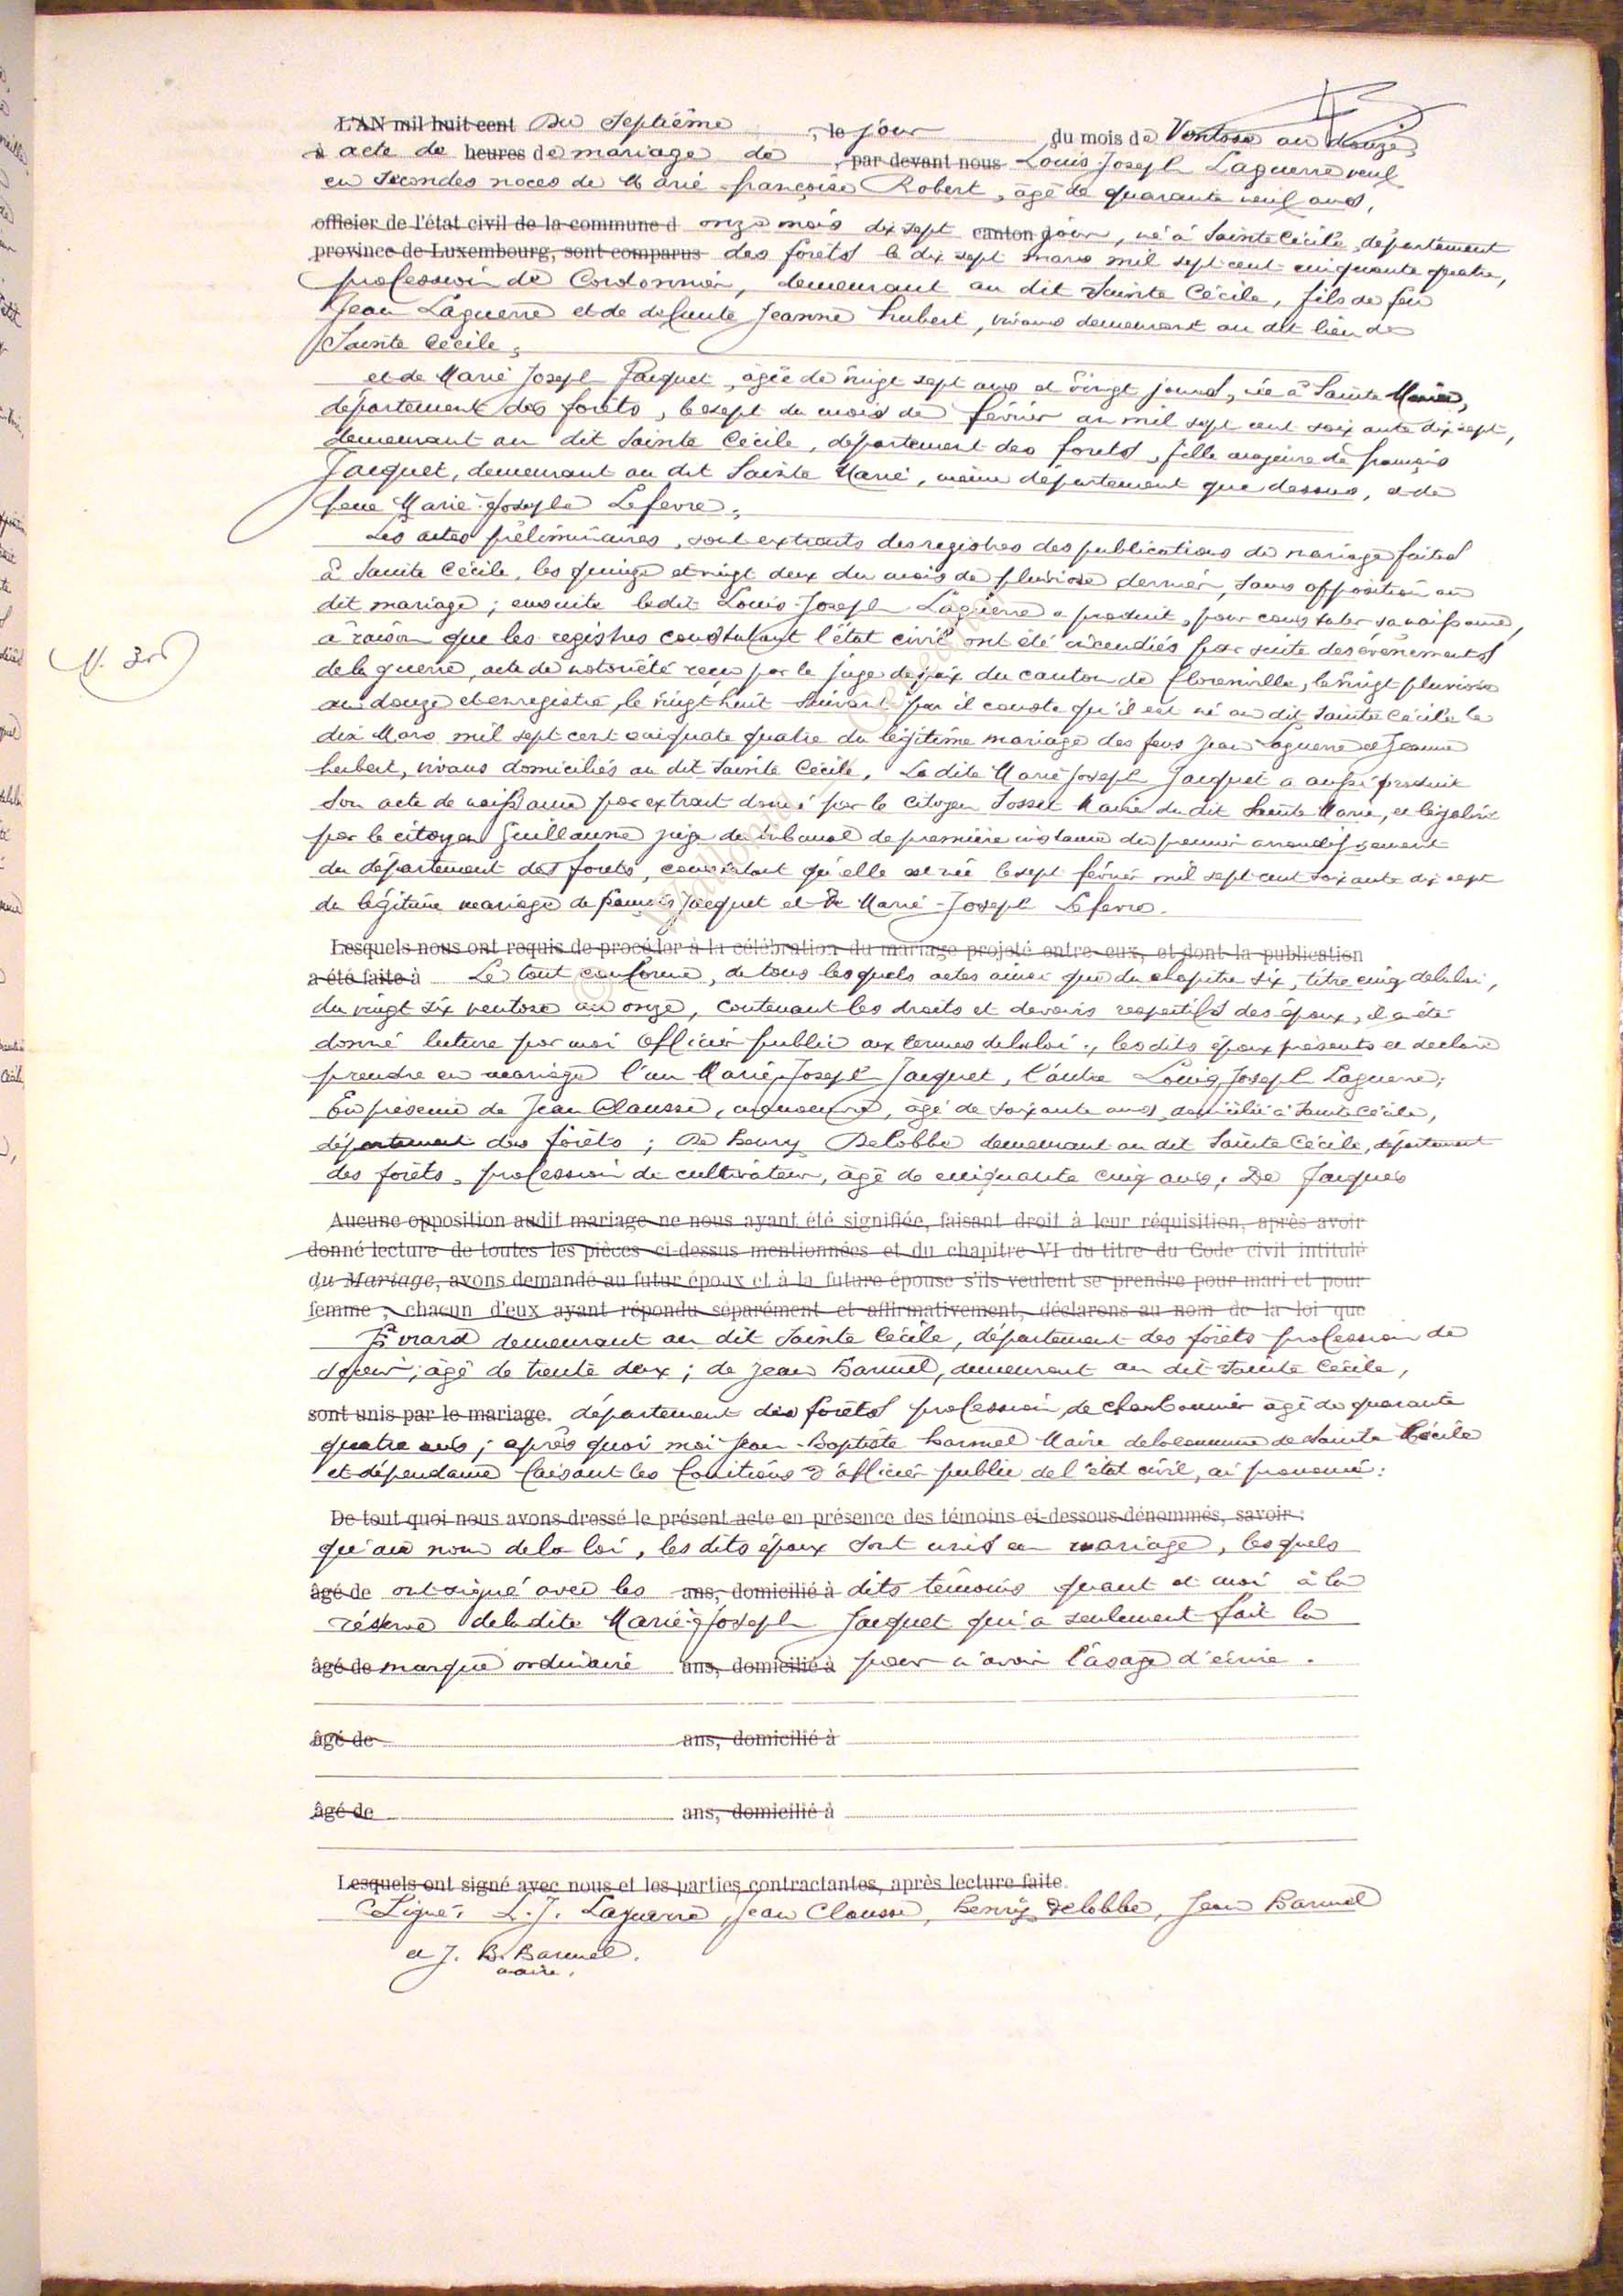 L'AN mil huit cent Du Septième, le jour du mois de Ventose an douze,
à acte de heures de mariage de par devant nous Louis Joseph Laguerre veuf
en secondes noces de Marie françoise Robert, âgé de quarante neuf ans,
officier de l'état civil de la commune d onze mois dix sept canton jour, né à Sainte Cécile, département
province de Luxembourg, sont comparus des forêts le dix sept mars mil sept cent cinquante quatre,
profession de Cordonnier, demeurant au dit Sainte Cécile, fils de feu
Jean Laguerre et de defunte Jeanne hubert, vivans demeurant au dit lieu de
Sainte Cécile;
et de Marie Joseph Jacquet, âgée de vingt sept ans et vingt jours, née à Sainte Marie,
département des forêts, le sept du mois de février an mil sept cent soixante dix sept,
demeurant au dit Sainte Cécile, département des forets, fille majeure de françois
Jacquet, demeurant au dit Sainte Marie, même département que dessus, et de
feue Marie-Josephe Lefevre;
Les actes préliminaires, sont extraits des registres des publications de mariage faites
à Sainte Cécile, les quinze et vingt deux du mois de pluviose dernier, sans opposition au
dit mariage; ensuite ledit Louis-Joseph Laguerre a produit, pour constater sa naissance,
N. 3
à raison que les registres constatant l'état civil ont été incendiés par suite des évènements
de la guerre, acte de notoriété reçu par le juge de paix du canton de florenville, le vingt pluviose
an douze et enregistré, le vingt huit suivant par il conste qu'il est né au dit Sainte Cécile le
dix Mars mil sept cent cinquate quatre du légitime mariage des feus Jean Laguerre et Jeanne
hubert, vivans domiciliés au dit Sainte Cécile. La dite Marie Joseph Jacquet a aussi produit
son acte de naissance par extrait donné par le citoyen Sosset Maire du dit Sainte Marie, et légalisé
par le citoyen Guillaume juge du tribunal de première instance du premier arrondissement
du département des forets, constatant qu'elle est née le sept février mil sept cent soixante dix sept
du légitime mariage de françois Jacquet et de Marie-Joseph Lefevre.
Lesquels nous ont requis de procéder à la célébration du mariage projeté entre eux, et dont la publication
a été faite à Le tout conforme, de tous lesquels actes ainsi que du chapitre six, titre cinq de la loi,
du vingt six ventose an onze, contenant les droits et devoirs respectifs des époux, il a été
donné lecture par moi Officier public aux termes de la loi; lesdits époux présents et déclaré
prendre en mariage l'un Marie Joseph Jacquet, l'autre Louis Joseph Laguerre;
En présence de Jean Clausse, âgé de soixante ans, domicilié à Sainte Cécile,
département des forêts; De henry Delobbe demeurant au dit Sainte Cécile, département
des forêts, profession de cultivateur, âgé de cinquante cinq ans; De Jacques
Aucune opposition audit mariage ne nous ayant été signifiée, faisant droit à leur réquisition, après avoir
donné lecture de toutes les pièces ci-dessus mentionnées et du chapitre VI du titre du Code civil intitulé
du Mariage, avons demandé au futur époux et à la future épouse s'ils veulent se prendre pour mari et pour
femme; chacun d'eux ayant répondu séparément et affirmativement, déclarons au nom de la loi que
Evrard demeurant au dit Sainte Cécile, département des forêts profession de
âgé de trente deux; de Jean Barmel, demeurant au dit Sainte Cécile,
sont unis par le mariage. département des forêts profession de charbonnier âgé de quarante
quatre ans; après quoi moi Jean-Baptiste Barmel Maire de la commune de Sainte Cécile
et dépendance faisant les fonctions d'officier public de l'état civil, ai prononcé:
De tout quoi nous avons dressé le présent acte en présence des témoins ci-dessous dénommés, savoir:
qu'au nom de la loi, les dits époux sont unis en mariage, lesquels
âgé de ont signé avec les ans, domicilié à dits témoins quant et moi à la
réserve de la dite Marie Joseph Jacquet qui a seulement fait la
âgé de marque ordinaire ans, domicilié à pour n'avoir l'usage d'écrire.
âgé de ans, domicilié à
âgé de ans, domicilié à
Lesquels ont signé avec nous et les parties contractantes, après lecture faite.
Signé: L. J. Laguerre, Jean Clausse, henry Delobbe, Jean Barmel
et J. B. Barmel.
maire.